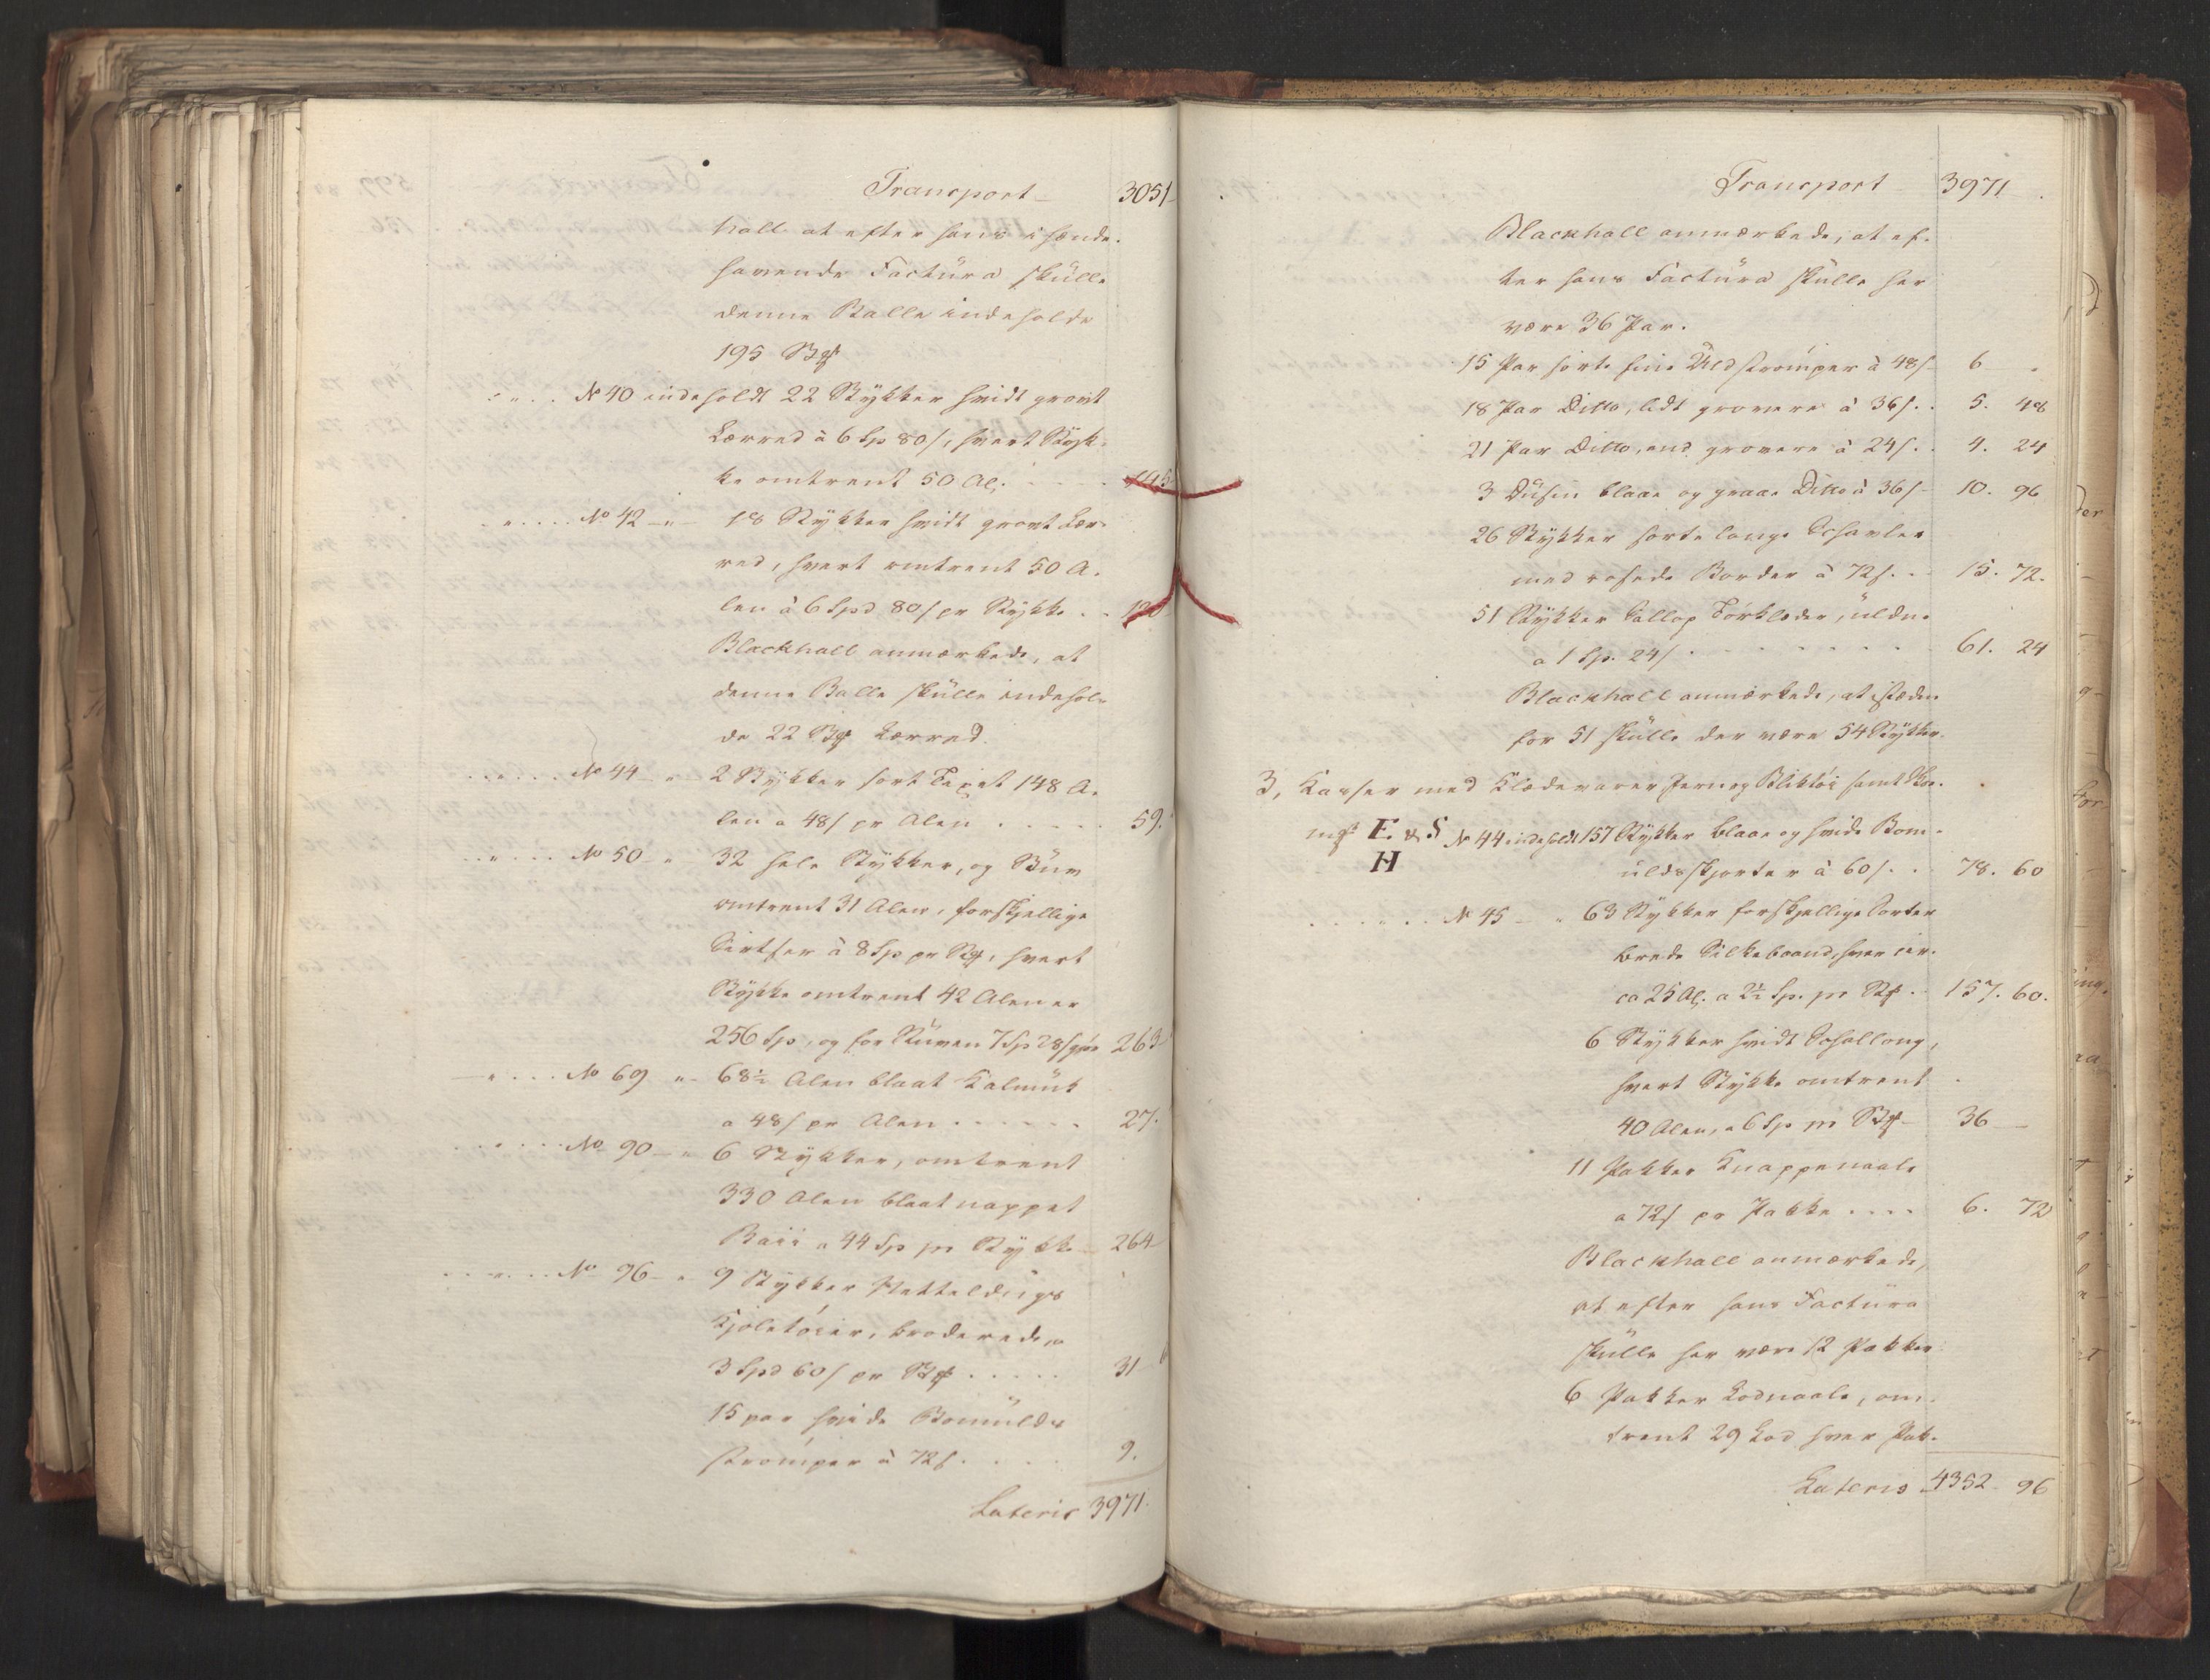 Transport 3051
hall at efter hans i hænde-
havende Factura skulle
denne Balle indeholde
195 Stk
N 40 indeholdt 22 Stykker hvidt grovt
Lærred à 6 Sp 80 s, hvert Styk-
ke omtrent 50 Al. 145
No 42 - " - 18 Stykker hvidt grovt Lær-
red, hvert omtrent 50 A-
len à 6 Spd 80 s pr Stykke . . 120
Blackhall anmærkede, at
denne Balle skulle indehol-
de 22 Stk Lærred.
No 44 - " 2 Stykker sort 148 A-
len a 48 s pr Alen . . . . 59.
No 50 - " 32 hele Stykker, og Stuv
omtrent 31 Alen, forskjellige
Sirtser à 8 Sp pr Stk, hvert
Stykke omtrent 42 Alen er
256 Sp, og for Stuven 7 Sp 28 s gjør 263
No 69 " - 68½ Alen blaat Kalmuk
a 48 s pr Alen . . . . . . 27.
No 90 - " 6 Stykker, omtrent
330 Alen blaat nappet
Baii a 44 Sp pr Stykke - 264
No 96 - " 9 Stykker Netteldugs
Kjoletøier, broderede, a
3 Spd 60 s pr Stk . . . . . 31
15 par hvide Bomulds
strømper à 72 s . . . . 9.
Lateris 3971.
Transport 3971
Blackhall anmærkede, at ef-
ter hans Factura skulle her
være 36 Par.
15 Par sorte fine Uldstrømper à 48 s 6 "
18 Par Ditto, lidt grovere à 36 s . . 5. 48
21 Par Ditto, end grovere à 24 s . . 4. 24
3 Dusin blaae og graae Ditto à 36 s - 10. 96
26 Stykker sorte lange Schavler
med rosede Border à 72 s . . . 15. 72.
51 Stykker Tørklæder, uldne
a 1 Sp. 24 s . . . . . . . . 61. 24
Blackhall anmærkede, at istæden
for 51 skulle der være 54 Stykker.
3, Kasser med Klædevarer Jern og Bliktøi samt
mrkt E & S N 44 indeholdt 157 Stykker blaae og hvide Bom-
H uldsskjorter à 60 s . . 78. 60
N 45 - " 63 Stykker forskjellige Sorter
brede Silkebaand, hver cir-
ca 25 Al. a 2½ Sp. pr Stk . . 157. 60.
6 Stykker hvidt Schallong,
hvert Stykke omtrent
40 Alen, a 6 Sp pr Stk - 36 -
11 Pakker Knappenaale
a 72 s pr Pakke . . . . 6. 72
Blackhall anmærkede,
at efter hans Factura
skulle her være 12 Pakker
6 Pakker Lodnaale, om-
trent 29 Lod hver Pak-
Lateris 4352 96